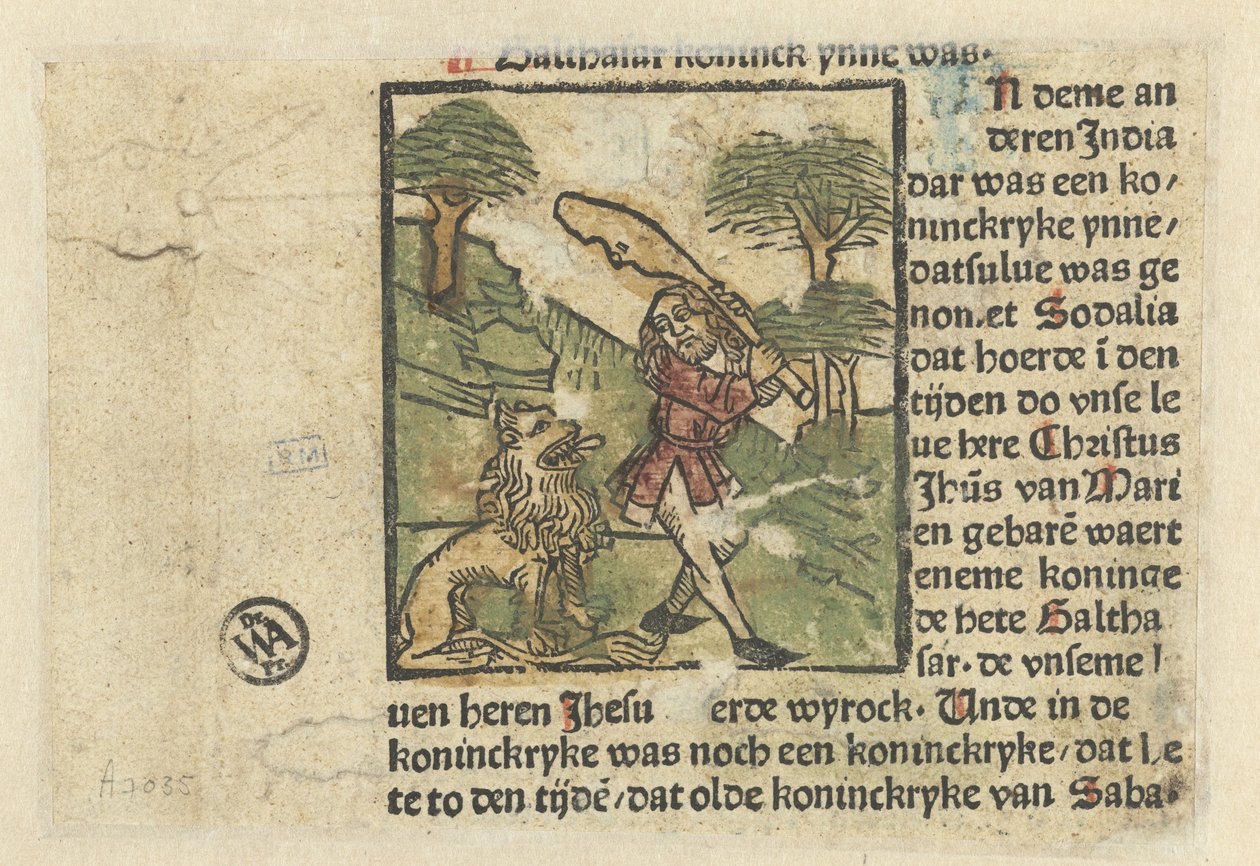 Balthasar koninck ynne was.
N deme an
deren India
dar was een ko/
ninckryke ynne/
datsulue was ge
non.et Sodalia
dat hoerde ī den
tijden do vnse le
ue here Christus
Jhūs van Mari
en gebarē waert
eneme koninge
de hete Baltha
sar. de vnseme l
uen heren Jhesu erde wyrock. Unde in de
koninckryke was noch een koninckryke/dat he
te to den tijdē/dat olde koninckryke van Saba.
WA
A 7035